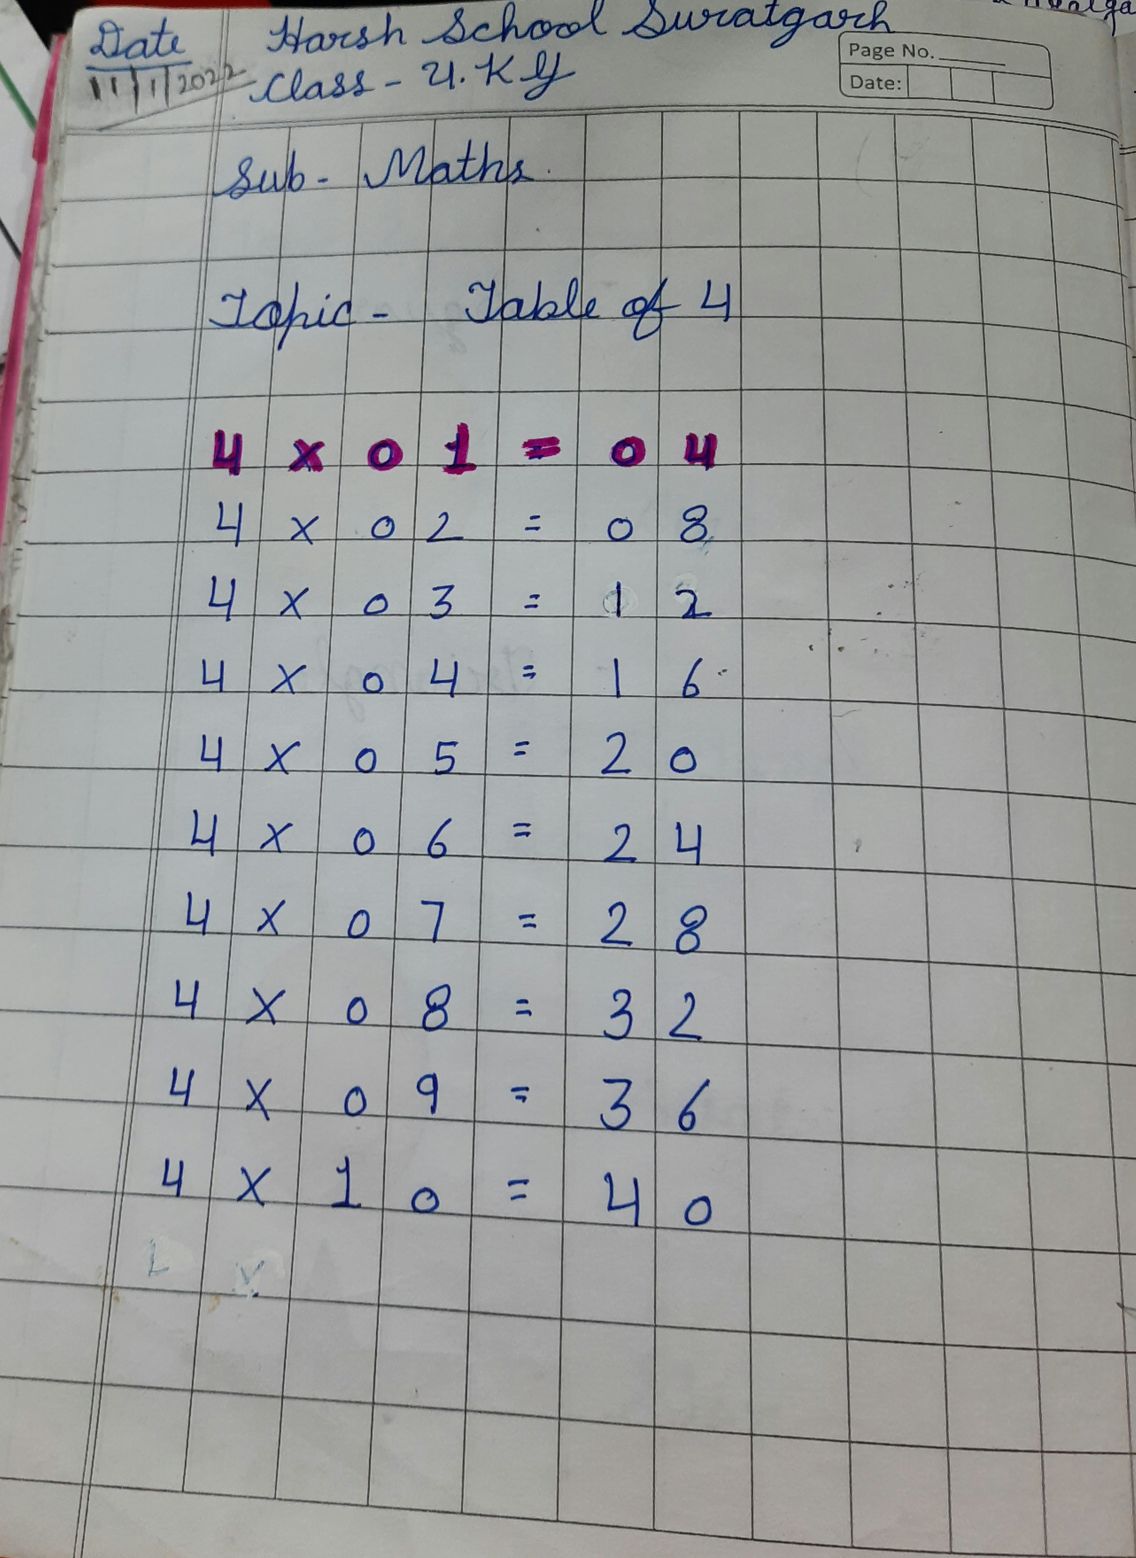 Date Harsh School Suratgarh
11/1/2022 Class - U.Kg
Page No.
Date:
Sub- Maths.
Topic - Table of 4
4 x 0 1 = 0 4
4 x 0 2 = 0 8
4 x 0 3 = 1 2
4 x 0 4 = 1 6
4 x 0 5 = 2 0
4 x 0 6 = 2 4
4 x 0 7 = 2 8
4 x 0 8 = 3 2
4 x 0 9 = 3 6
4 x 1 0 = 4 0